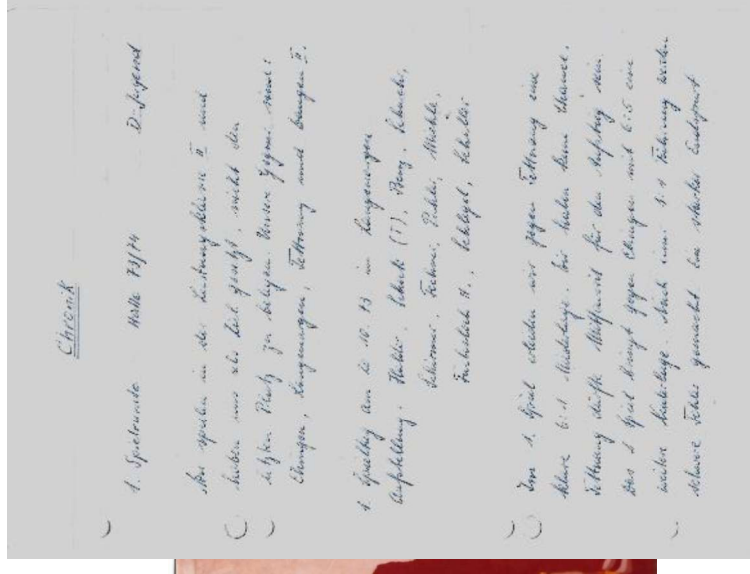 Chronik
1. Spielrunde Halle 73/74 D-Jugend
Wir spielen in der Leistungsklasse II und
haben uns als Ziel gesetzt, nicht den
letzten Platz zu belegen. Unsere Gegner sind:
Ehingen, Langenargen, Tettnang und Langen II.
1. Spieltag am 20.10.73 in Langenargen
Aufstellung: Schuk (T), Benz, Schuchs,
Schirmer, Pichler, Michle,
Schlegel, Schuller
Im 1. Spiel erlebten wir gegen Tettnang eine
klare 6:1 Niederlage. Wir hatten keine Chance.
Tettnang dürfte Mitfavorit für den Aufstieg sein.
Das 2. Spiel bringt gegen Ehingen mit 6:5 eine
weitere Niederlage. Nach einer 3:1 Führung werden
schwere Fehler gemacht. Ein starker Endspurt